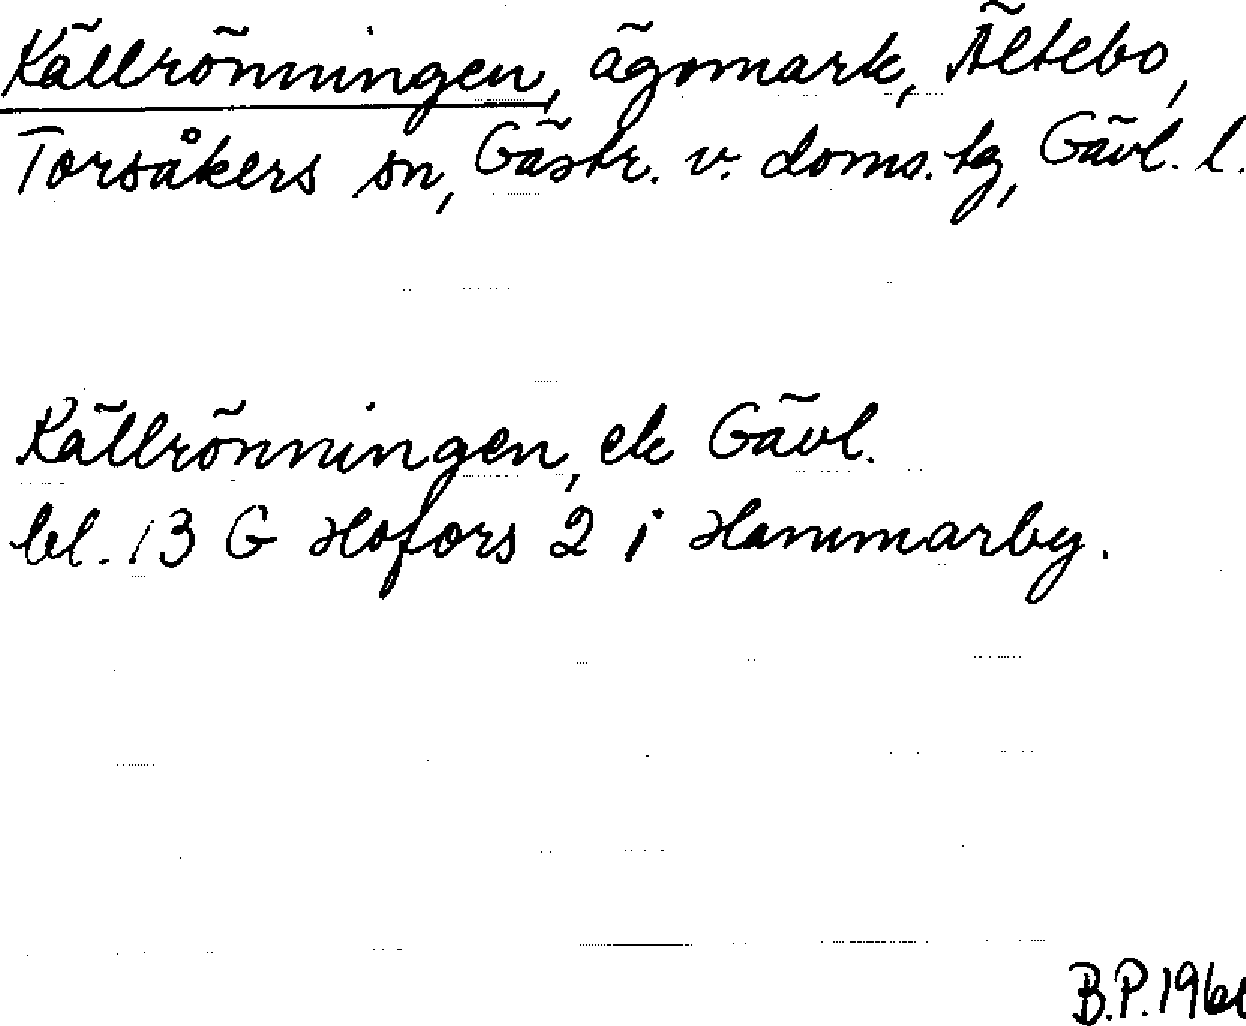 Källrönningen, ägomark, Ältebo,
Torsåkers sn, Gästr. v. doms. tg, Gävl. l.
Källrönningen, ek Gävl.
bl. 13 G Hofors 2 i Hammarby.
B.P.1961